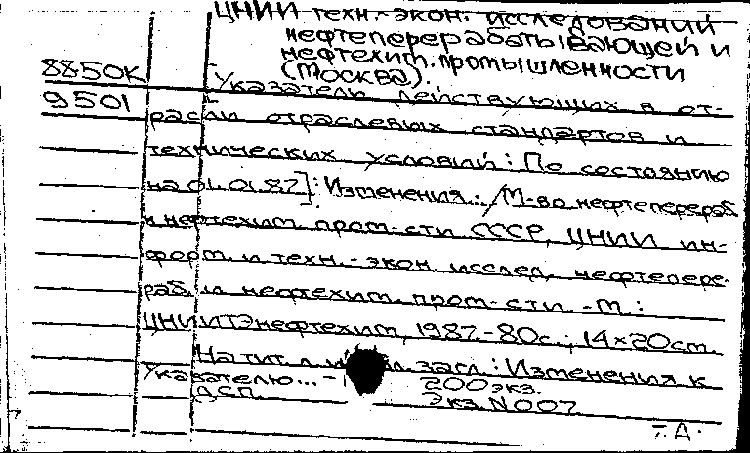 ЦНИИ техн.-экон. исследований
нефтеперерабатывающей и
нефтехим. промышленности
(Москва).
8850К
9501
[Указатель действующих в от-
расли отраслевых стандартов и
технических условий: По состоянию
на 01.01.87]: Изменения.: /М-во нефтеперераб.
и нефтехим. пром-сти СССР, ЦНИИ ин-
форм. и техн.-экон. исслед. нефтепере-
раб. и нефтехим. пром-сти.-М.:
ЦНИИТЭнефтехим, 1987.-80с.; 14×20см.
На тит. л. загл.: Изменения к
Указателю...-
200экз.
ДСП.
Экз.N007
Т.Д.